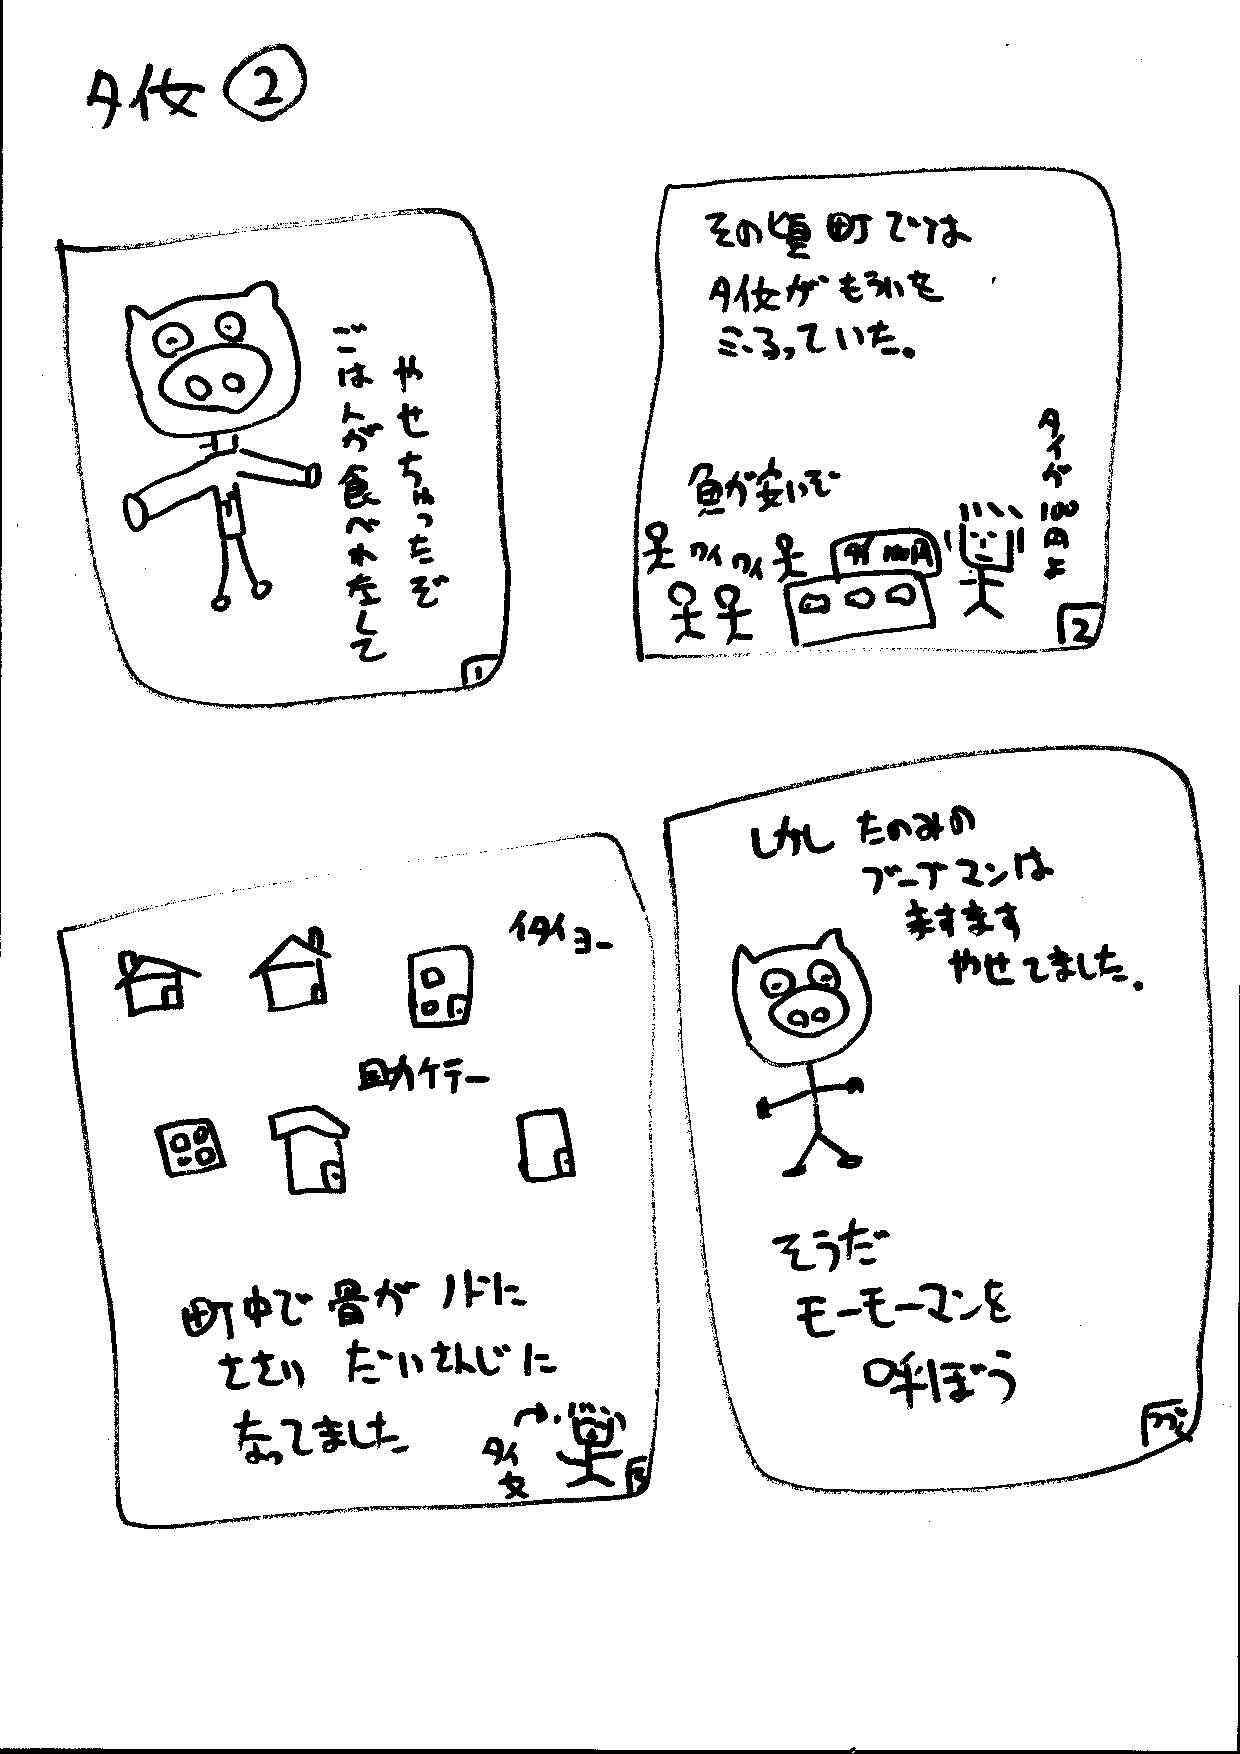 タイ女②
やせちゃったぞ
ごはんが食べれなくて
1
その頃町では
タイ女がもういを
ふるっていた。
タイが100円よ
魚が安いぞ
ワイワイ
タイ100円
2
イタイヨー
助ケテー
町中で骨がノドに
ささり だいさんじに
なってました
タイ女
3
しかし たのみの
ブーブマンは
ますます
やせてました。
そうだ
モーモーマンを
呼ぼう
つづく